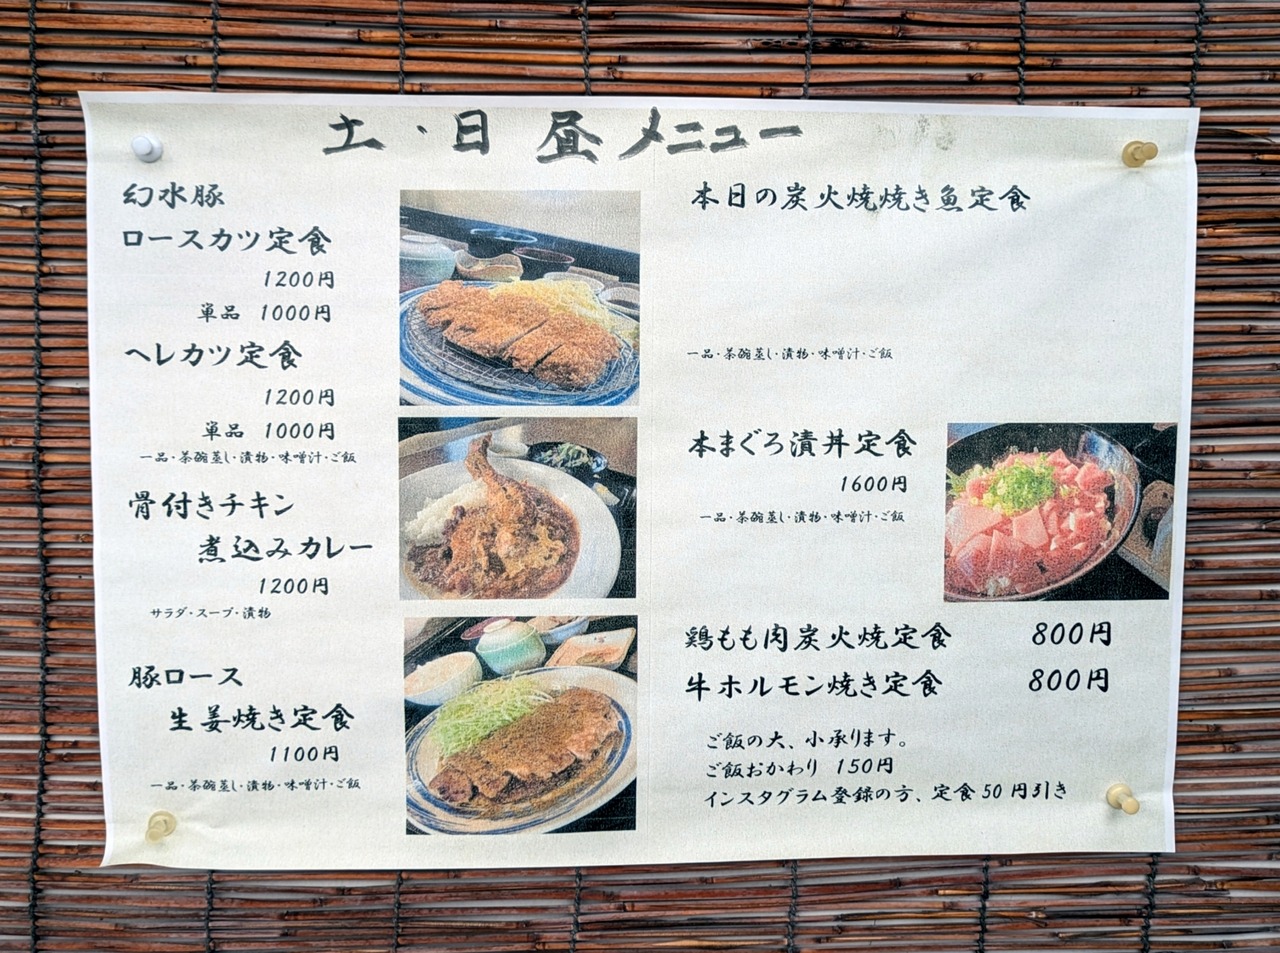 土・日 昼メニュー
幻水豚
ロースカツ定食
1200円
単品 1000円
ヘレカツ定食
1200円
単品 1000円
一品・茶碗蒸し・漬物・味噌汁・ご飯
骨付きチキン
煮込みカレー
1200円
サラダ・スープ・漬物
豚ロース
生姜焼き定食
1100円
一品・茶碗蒸し・漬物・味噌汁・ご飯
本日の炭火焼焼き魚定食
一品・茶碗蒸し・漬物・味噌汁・ご飯
本まぐろ漬丼定食
1600円
一品・茶碗蒸し・漬物・味噌汁・ご飯
鶏もも肉炭火焼定食 800円
牛ホルモン焼き定食 800円
ご飯の大、小承ります。
ご飯おかわり 150円
インスタグラム登録の方、定食50円引き